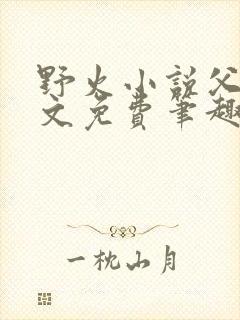 野火小说父
文免费笔趣
一枕山月